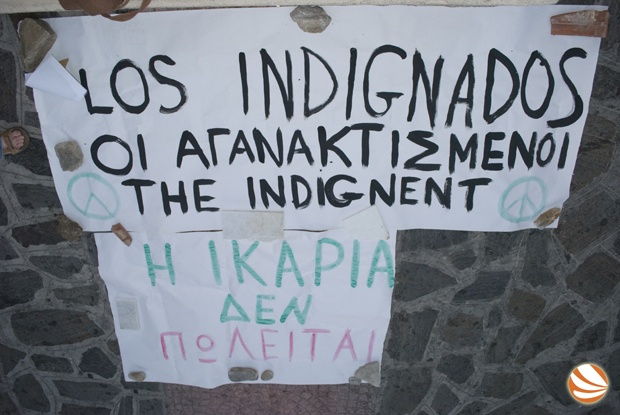 LOS INDIGNADOS
ΟΙ ΑΓΑΝΑΚΤΙΣΜΕΝΟΙ
THE INDIGNENT
Η ΙΚΑΡΙΑ
ΔΕΝ
ΠΩΛΕΙΤΑΙ